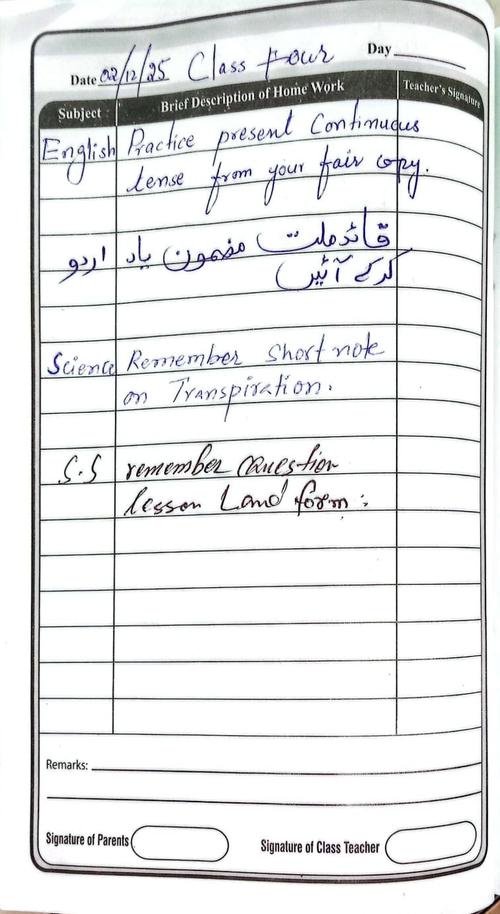 Date 02/12/25 Class Four Day
Subject Brief Description of Home Work Teacher's Signature
English Practice present Continuous
tense from your fair copy.
اردو قائد ملت مضمون یاد
کرکے آئیں
Science Remember Short note
on Transpiration.
S.S remember Question
lesson Land form :
Remarks:
Signature of Parents Signature of Class Teacher